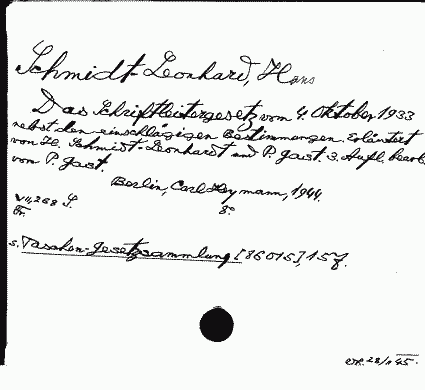 Schmidt-Leonhard, Hans
Das Schriftleitergesetz vom 4. Oktober 1933
nebst den einschlägigen Bestimmungen. Erläutert
von H. Schmidt-Leonhardt und P. Gast. 3. Aufl. bearb.
vom P. Gast.
Berlin, Carl Heymann, 1944.
VII, 268 S. 8°
Fr.
s. Taschen-Gesetzsammlung [86015], 157.